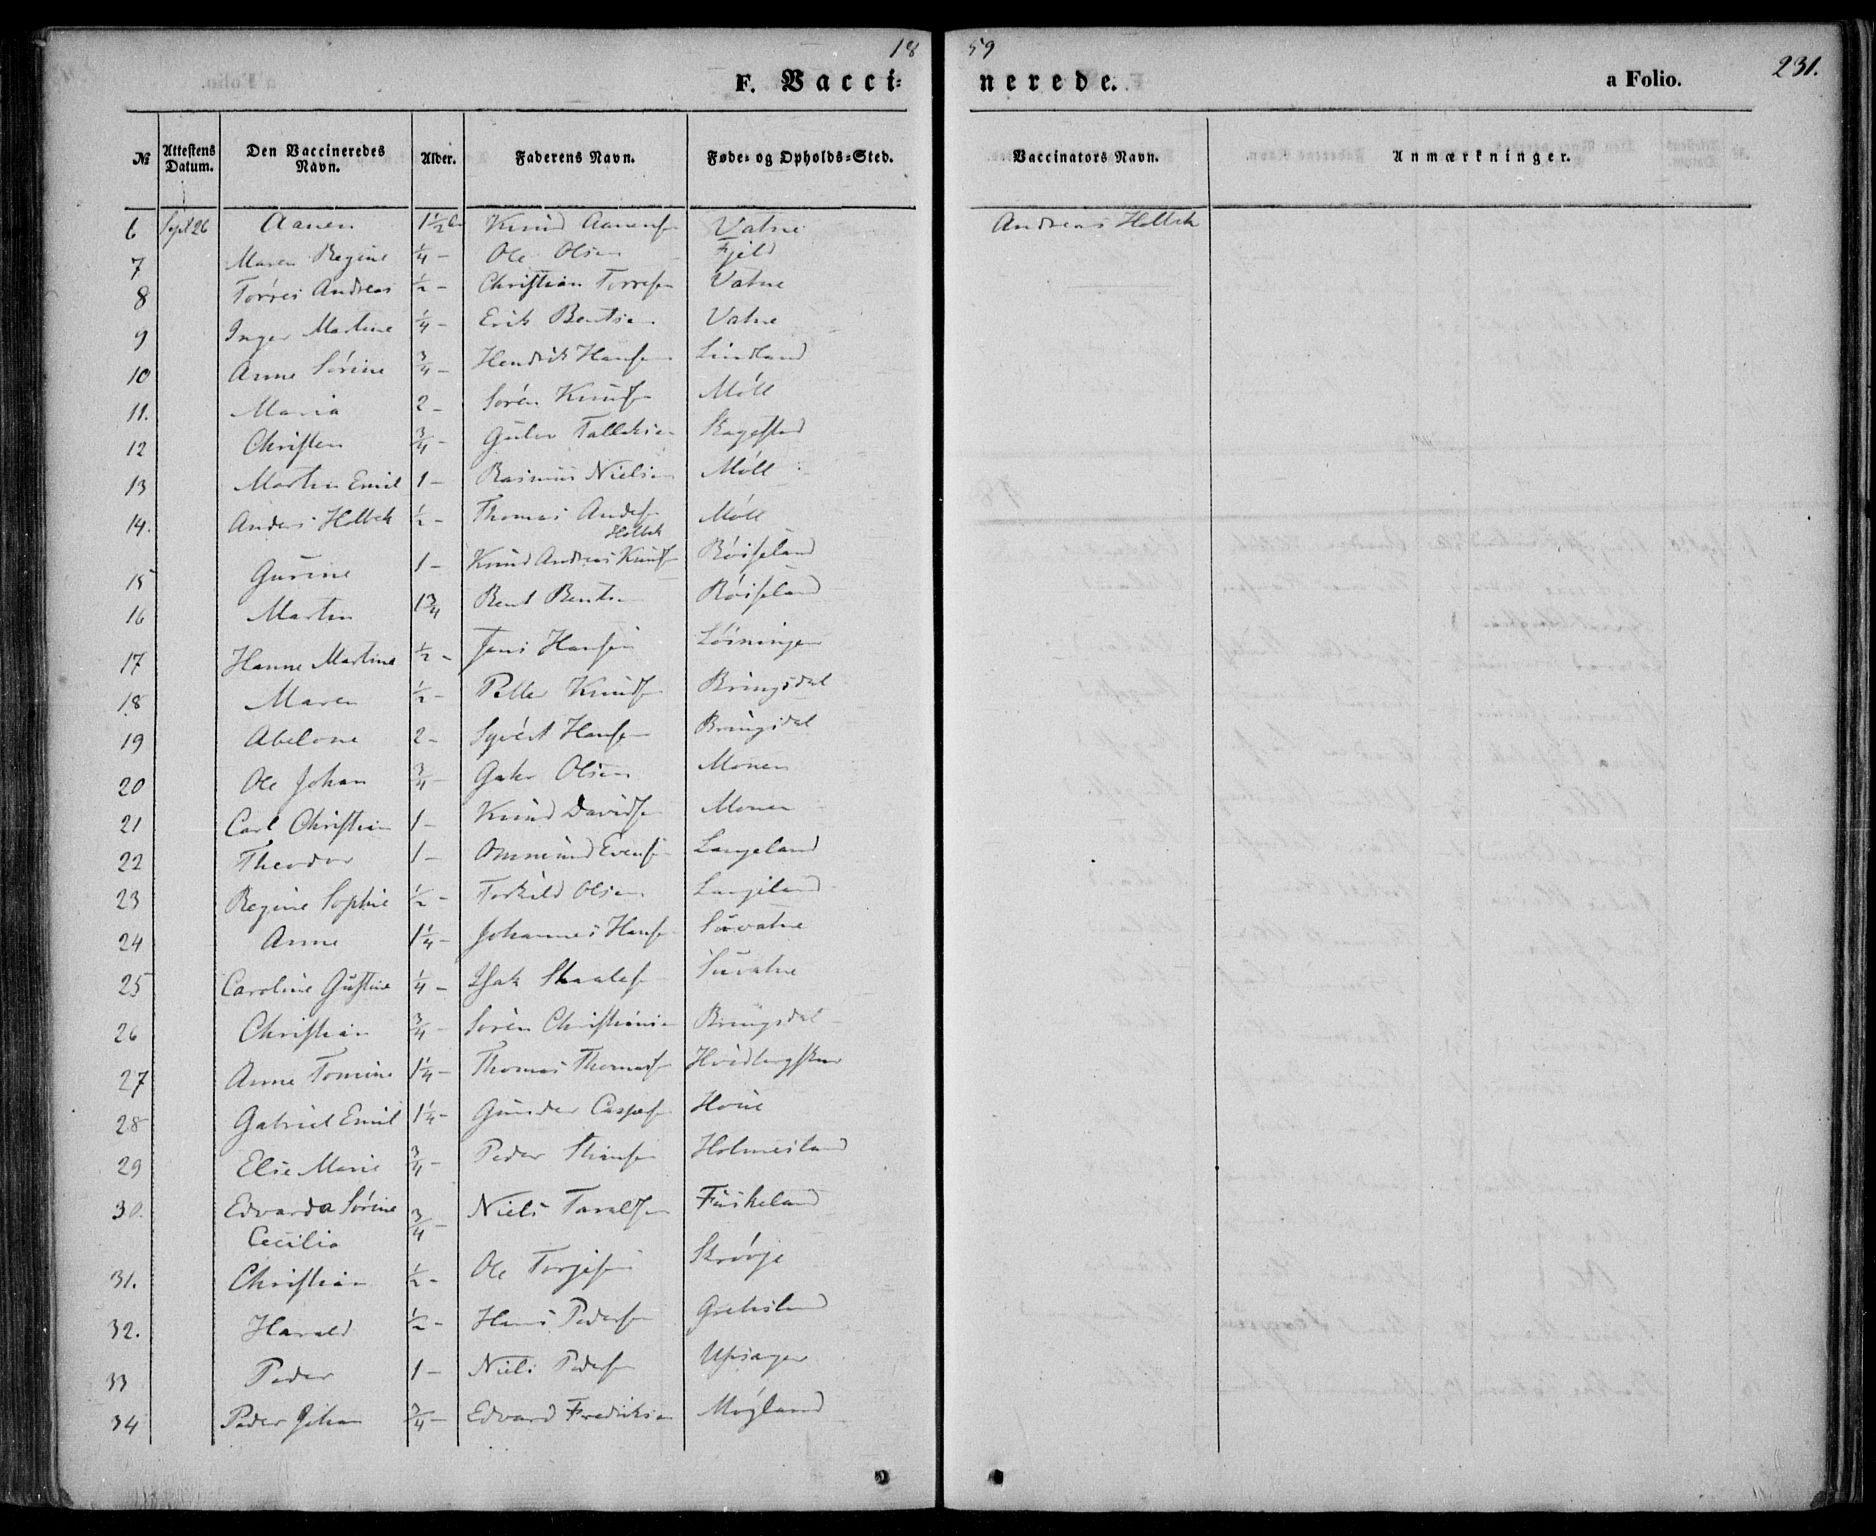 18 59
231.
F. Vacci- nerede. a Folio.
№ Attestens Datum. Den Vaccineredes Navn. Alder. Faderens Navn. Føde- og Opholds-Sted. Vaccinators Navn. Anmærkninger.
6 Sept 26 Aanen 1½ Knud Aanens Vatne Andreas Holbek
7 Maren Regine ¼ – Ole Olsen Fjeld
8 Torres Andreas ½ – Christian Torresen Vatne
9 Inger Martine ¼ – Erik Bentsen Vatne
10 Anne Sørine ¾ – Hendrik Hansen Lindland
11. Maria 2 – Søren Knuds Møll
12 Christen ¾ – Gulov Talleksen Bagestad
13 Martin Emil 1 – Rasmus Nielsen Møll
14. Anders Holbek ½ – Thomas Anders Holbek Møll
15 Gurine 1 – Knud Andreas Knuds Røiseland
16 Martin 1¾ Bent Bentsen Røiseland
17 Hanne Martine ½ – Jens Hansen Løsningen
18 Maren ½ – Peller Knudsen Bringsdal
19 Abelone 2 – Syvert Hansen Bringsdal
20 Ole Johan ¾ – Olsen Monen
21 Carl Christian 1 – Knud Davidsen Monen
22 Theodor 1 – Ommund Evensen Langeland
23 Regine Sophie ½ – Torkild Olsen Langeland
24 Anne 1¼ – Johannes Hansen Suvatne
25 Caroline Gustine ¼ – Isak Staales Suvatne
26 Christian ¾ – Søren Christiansen Bringsdal
27 Anne Tomine 1¼ – Thomas Thomass
28 Gabriel Emil 1¼ – Gunder Caspers Houe
29 Elie Marie ¾ – Peder Holmesland
30. Edvarda Sørine Cecilia ¾ – Niels Taraldsen Fuskeland
31. Christian ½ – Ole Torjesen Skrøvje
32. Harald ½ – Hans Pedersen Grebsland
33 Peder 1 – Niels Pedersen
34 Peder Johan ¾ – Edvard Fredriksen Møgland